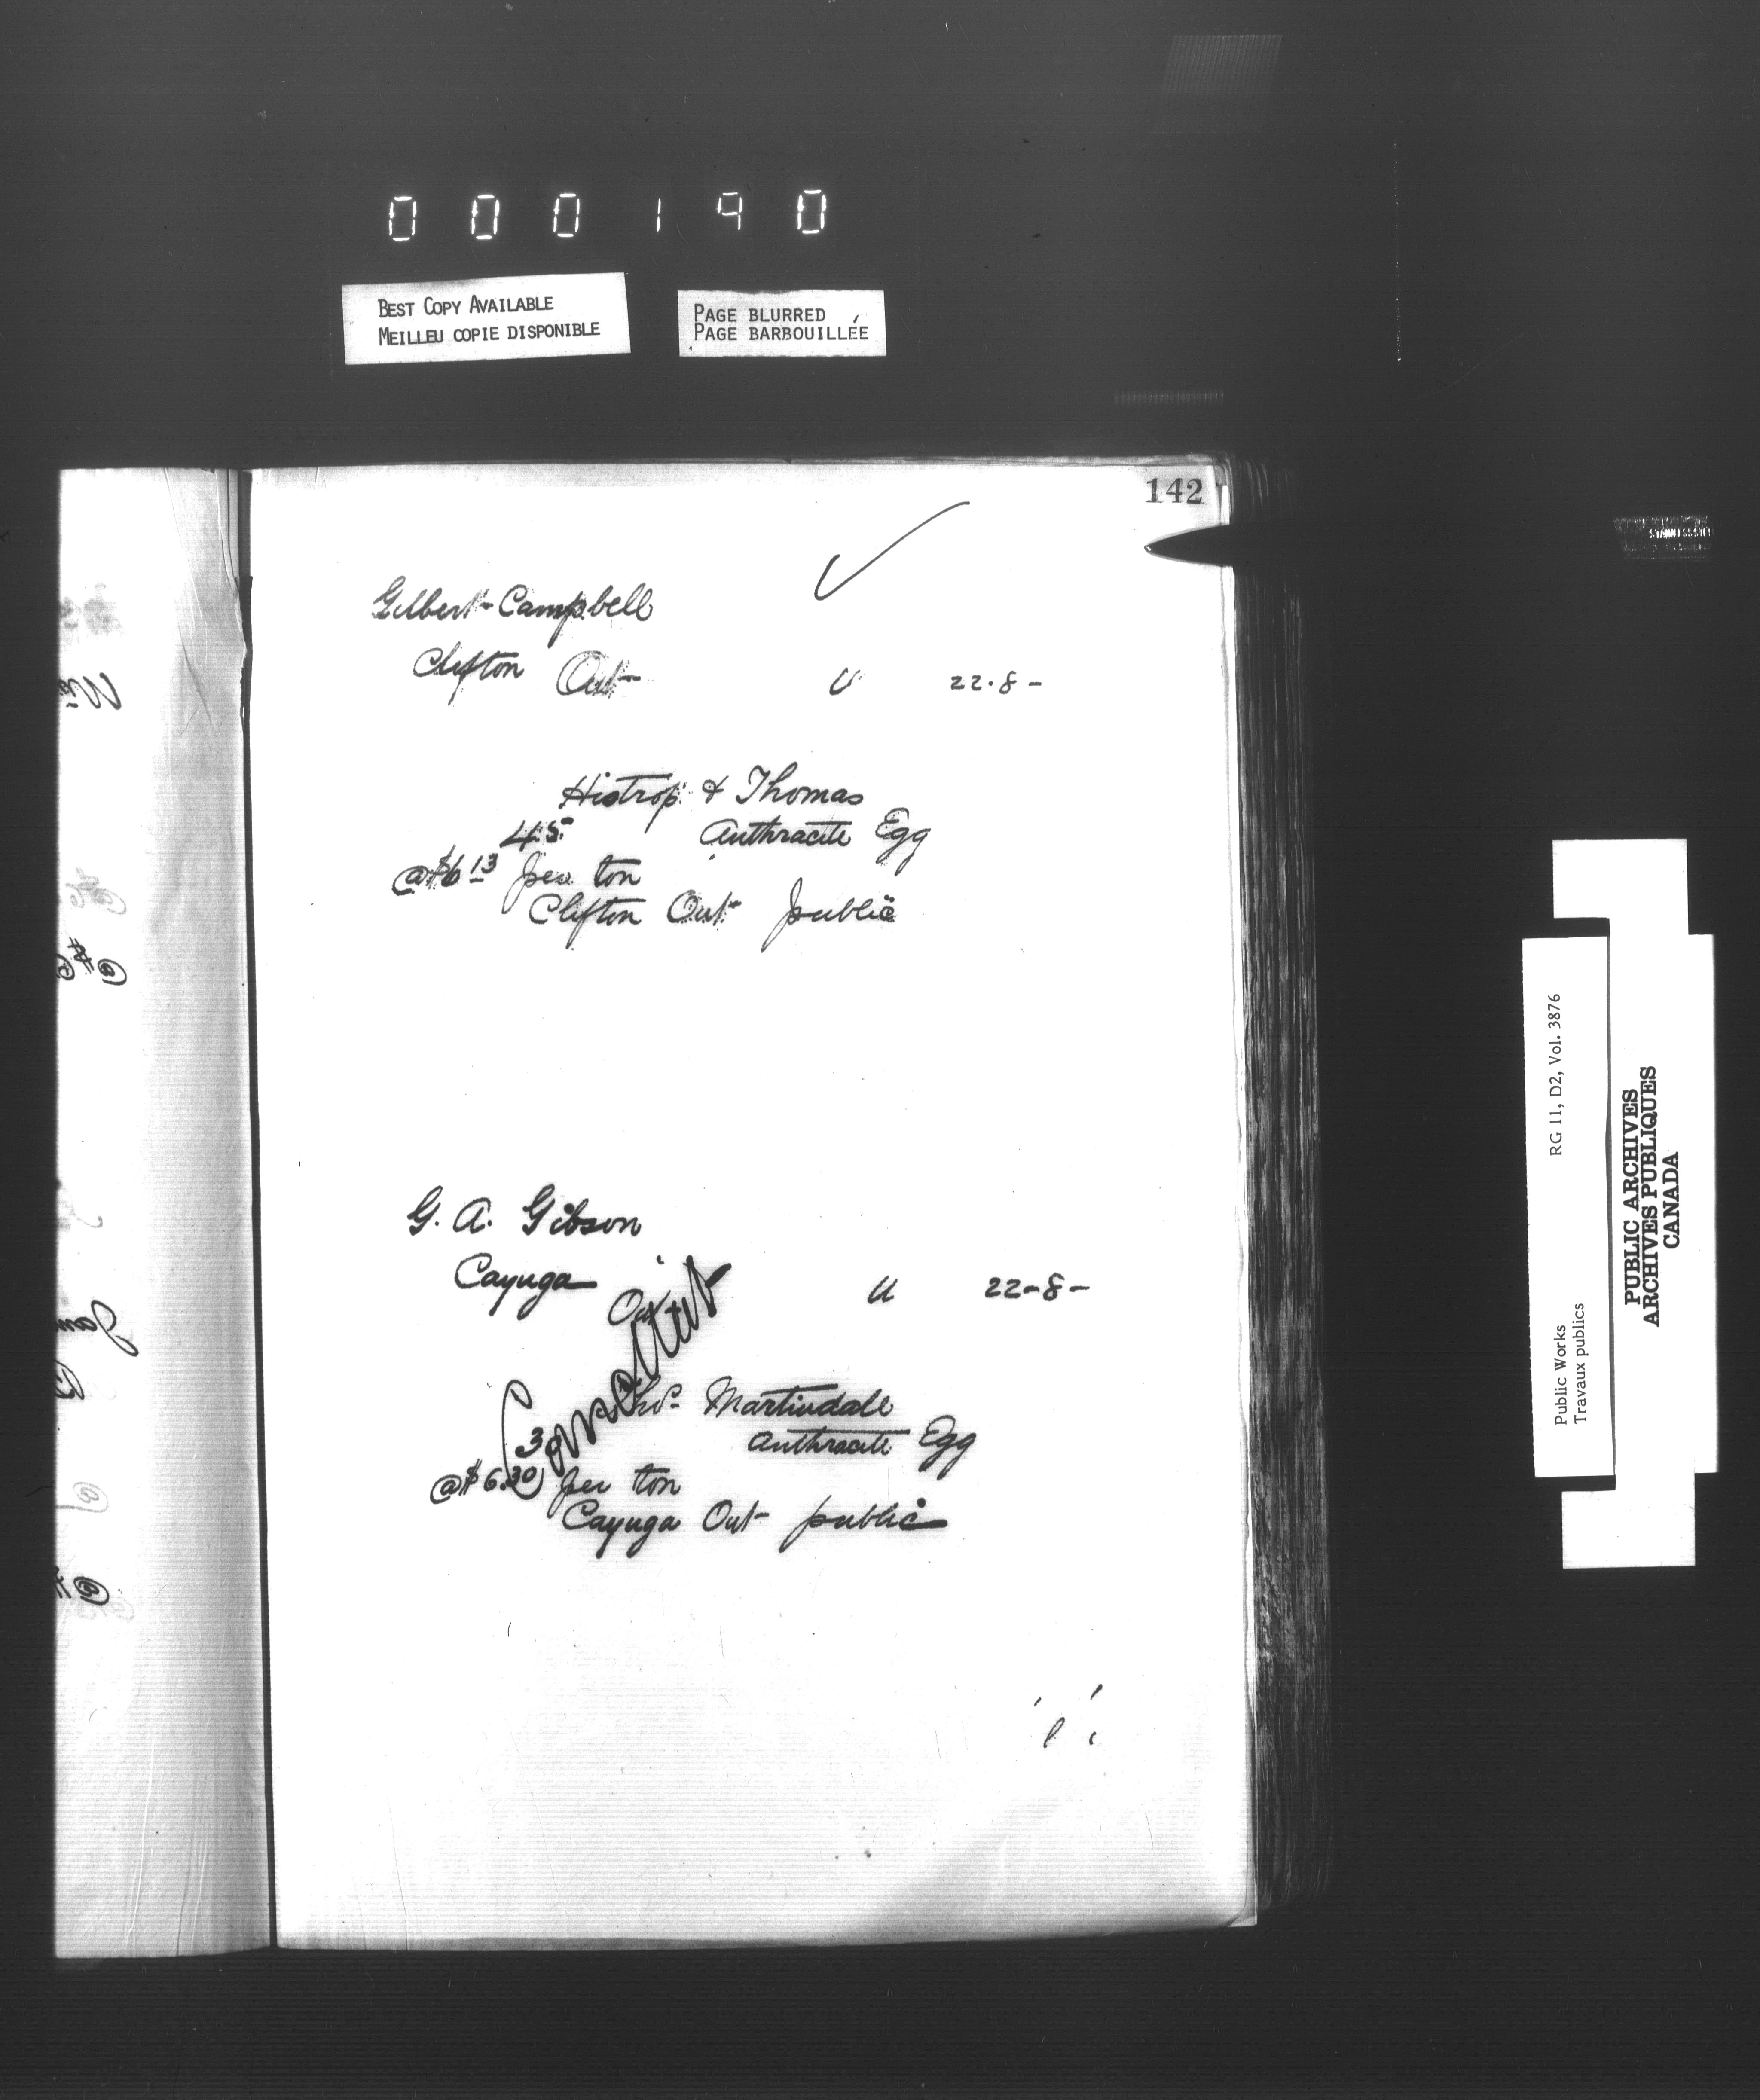 000190
BEST COPY AVAILABLE
MEILLEU COPIE DISPONIBLE
PAGE BLURRED
PAGE BARBOUILLÉE
142
Gilbert Campbell
Clifton Ont
U 22-8-
Histrop & Thomas
45 Anthracite Egg
@ $6 13 per ton
Clifton Ont public
G. A. Gibson
Cayuga
Ont
U 22-8-
Martindale
3 Anthracite Egg
@ $6.30 per ton
Cayuga Ont public
STAINLESS STEEL
RG 11, D2, Vol. 3876
Public Works
Travaux publics
PUBLIC ARCHIVES
ARCHIVES PUBLIQUES
CANADA